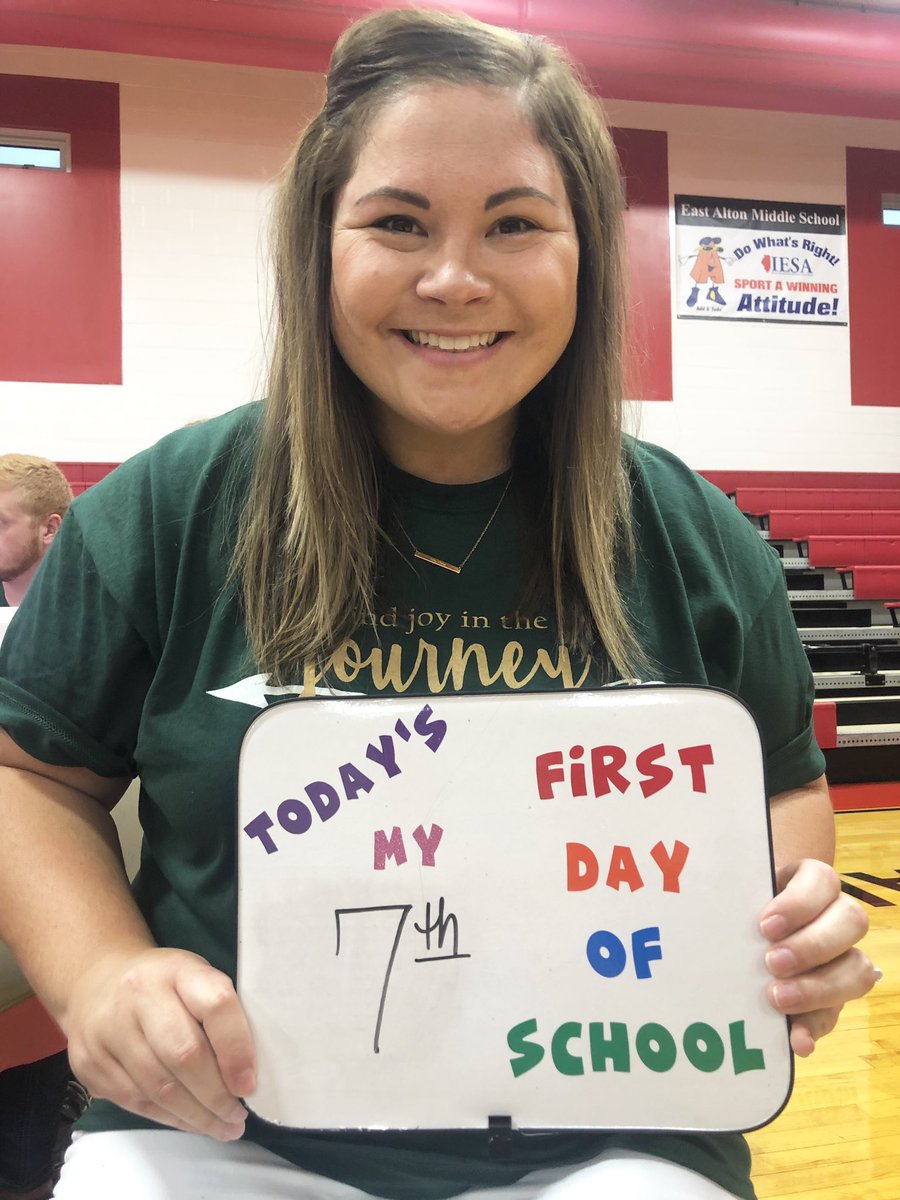 East Alton Middle School
Do What's Right!
IESA
SPORT A WINNING
Attitude!
joy in the
Journey
TODAY'S
MY
7th
FiRST
DAY
OF
SCHOOL